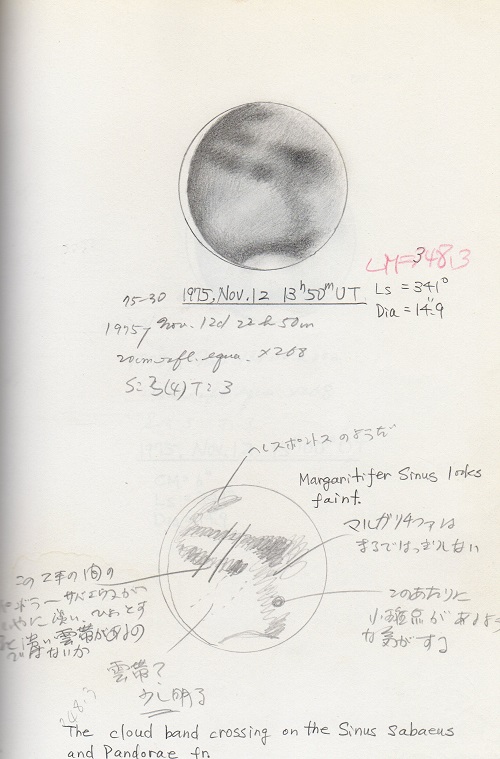 LM=348.3
75-30 1975, Nov. 12 13h50m UT
Ls = 341°
Dia = 14".9
1975, Nov. 12d 22h 50m
20cm refl. equa. ×268
S=3(4) T=3
ヘレスポントスのようだ
Margaritifer Sinus looks
faint.
マルガリチファは
まるではっきりしない
この2本の間の
このあたりに
小斑点があるよう
な気がする
サバエウスが
に淡い、ひょっとす
ると淡い雲帯があるの
ではないか
雲帯?
少し明るい
348.3
The cloud band crossing on the Sinus Sabaeus
and Pandorae fr.